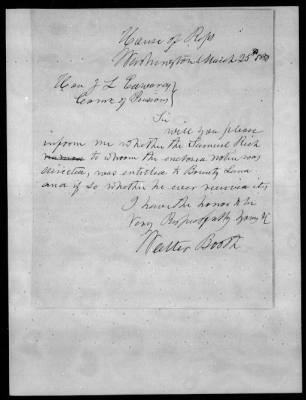 House of Reps
Washington March 25th 1850
Hon J L Edwards
Comr of Pensions
Sir
Will you please
inform me whether the Samuel Rich
to whom the enclosed notice was
directed, was entitled to Bounty Land
and if so whether he ever received it,
I have the honor to be
Very Respectfully Yours &c
Walter Booth